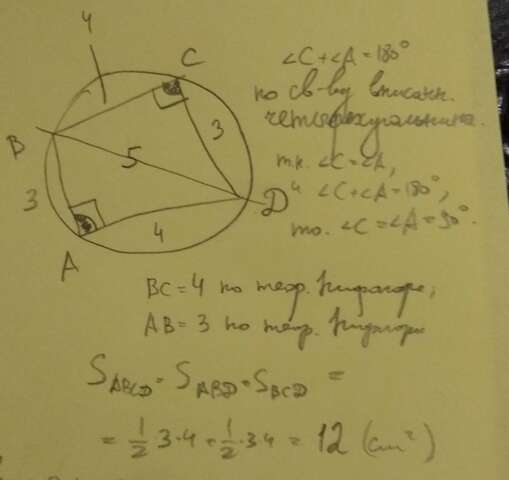 4
C
∠C+∠A=180°
по св-ву вписанн.
четырехугольника.
B
5
3
т.к. ∠C=∠A,
и ∠C+∠A=180°,
то ∠C=∠A=90°.
3
D
4
A
BC=4 по теор. Пифагора;
AB=3 по теор. Пифагора
S_ABCD = S_ABD + S_BCD =
= 1/2 3·4 + 1/2·3·4 = 12 (см²)